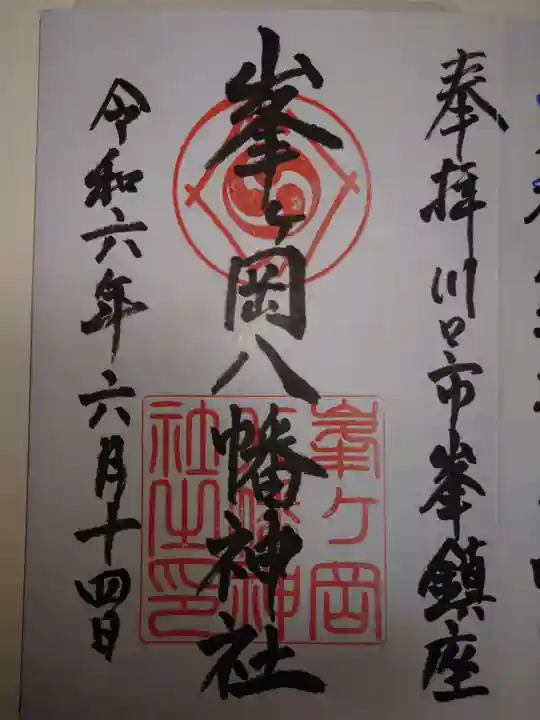 奉拝川口市峯鎮座
峯ヶ岡八幡神社
峯ヶ岡
八幡神
社之印
令和六年六月十四日